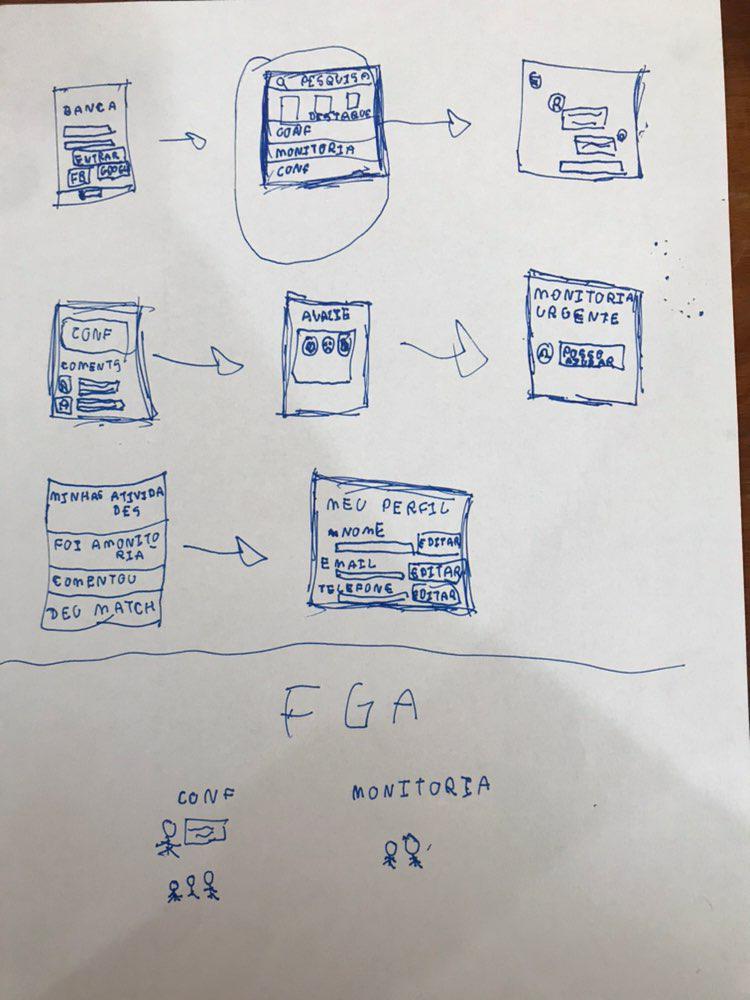 BANCA
ENTRAR
FB GOOGLE
PESQUISA
DESTAQUE
CONF
MONITORIA
CONF
R
CONF
COMENTS
AVALIE
MONITORIA
URGENTE
POSSO
AJUDAR
MINHAS ATIVIDA
DES
FOI A MONITO
RIA
COMENTOU
DEU MATCH
MEU PERFIL
NOME
EDITAR
EMAIL
EDITAR
TELEFONE
EDITAR
FGA
CONF
MONITORIA